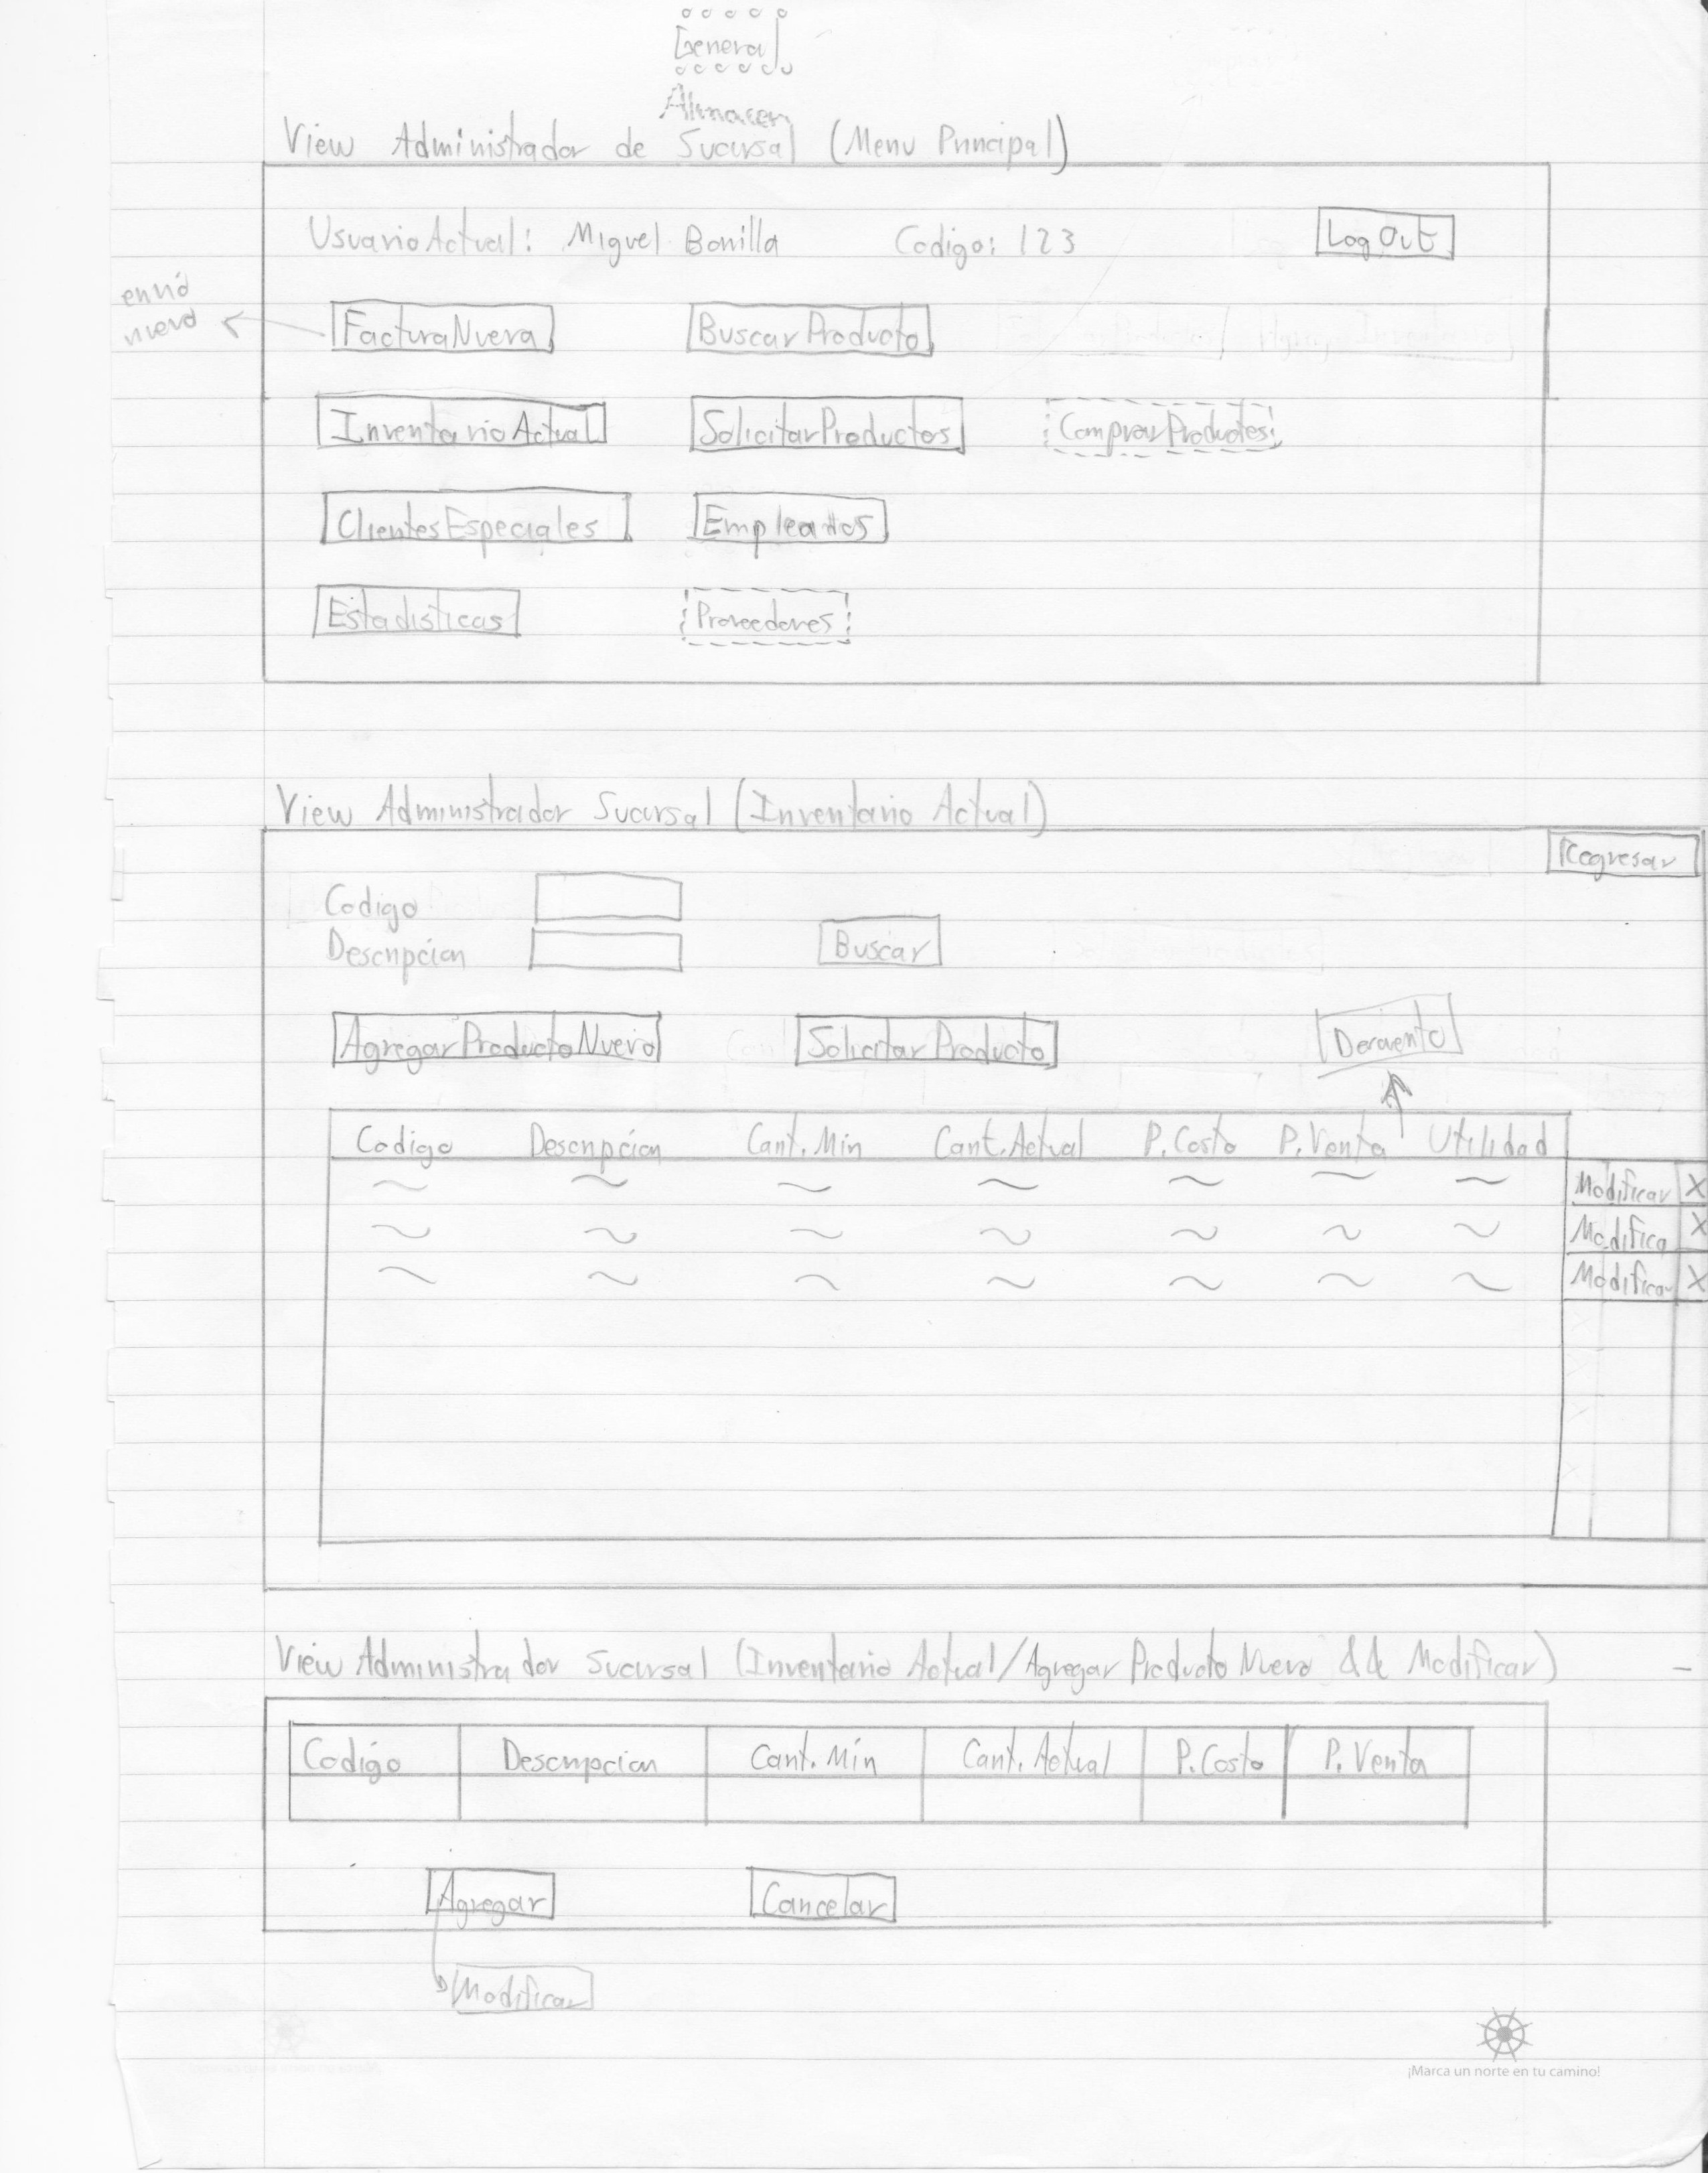 General
Almacen
View Administrador de Sucursal (Menu Principal)
Usuario Actual: Miguel Bonilla Codigo: 123 Log Out
envió
nuevo
Factura Nueva Buscar Producto
Inventario Actual Solicitar Productos Comprar Productos
Clientes Especiales Empleados
Estadisticas Proveedores
View Administrador Sucursal (Inventario Actual)
Regresar
Codigo
Descripción Buscar
Agregar Producto Nuevo Solicitar Producto
Codigo Descripción Cant. Min Cant. Actual P. Costo P. Venta Utilidad
Modificar X
Modifica X
Modificar X
View Administrador Sucursal (Inventario Actual/Agregar Producto Nuevo && Modificar)
Codigo Descripcion Cant. Mín Cant. Actual P. Costo P. Venta
Agregar Cancelar
Modificar
¡Marca un norte en tu camino!